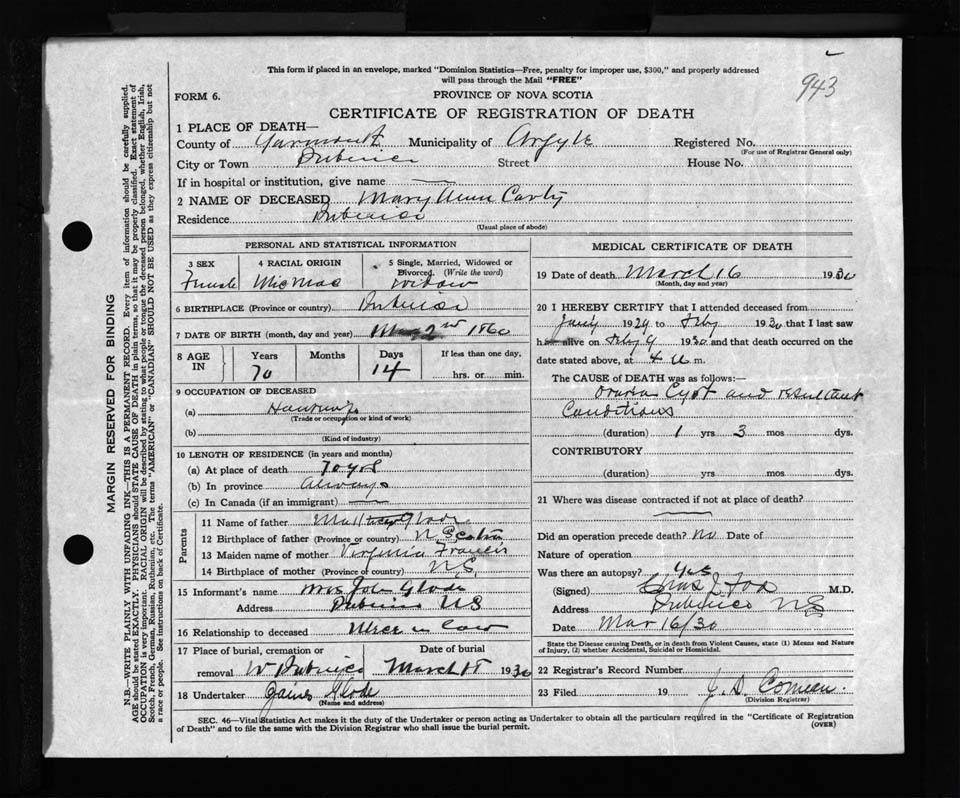 943
This form if placed in an envelope, marked "Dominion Statistics—Free, penalty for improper use, $300," and properly addressed
will pass through the Mail "FREE"
FORM 6.
PROVINCE OF NOVA SCOTIA
CERTIFICATE OF REGISTRATION OF DEATH
1 PLACE OF DEATH—
County of Yarmouth Municipality of Argyle Registered No.
(For use of Registrar General only)
City or Town Pubnico Street House No.
If in hospital or institution, give name —
2 NAME OF DECEASED Mary Ann Carty
Residence Pubnico
(Usual place of abode)
PERSONAL AND STATISTICAL INFORMATION
3 SEX
Female
4 RACIAL ORIGIN
Micmac
5 Single, Married, Widowed or
Divorced. (Write the word)
Widow
6 BIRTHPLACE (Province or country) Pubnico
7 DATE OF BIRTH (month, day and year) 2nd 1860
8 AGE IN
Years
70
Months
Days
14
If less than one day,
hrs. or min.
9 OCCUPATION OF DECEASED
(a)
(Trade or occupation or kind of work)
(b)
(Kind of industry)
10 LENGTH OF RESIDENCE (in years and months)
(a) At place of death 70 yrs
(b) In province Always
(c) In Canada (if an immigrant) —
Parents
11 Name of father Glode
12 Birthplace of father (Province or country) N Scotia
13 Maiden name of mother Virginia Francis
14 Birthplace of mother (Province or country) N.S.
15 Informant's name Mrs John Glode
Address Pubnico NS
16 Relationship to deceased in law
17 Place of burial, cremation or
removal W Pubnico
Date of burial
March 18 1930
18 Undertaker James Glode
(Name and address)
MEDICAL CERTIFICATE OF DEATH
19 Date of death March 16 1930
(Month, day and year)
20 I HEREBY CERTIFY that I attended deceased from
Jany 1929 to Feby 1930 that I last saw
h alive on Feby 9 1930 and that death occurred on the
date stated above, at 4 a m.
The CAUSE of DEATH was as follows:—
Ovarian Cyst and resultant
Conditions
(duration) 1 yrs 3 mos dys.
CONTRIBUTORY
(duration) yrs. mos. dys.
21 Where was disease contracted if not at place of death?
Did an operation precede death? no Date of
Nature of operation
Was there an autopsy? Yes
(Signed) Chas J Fox M.D.
Address Pubnico NS
Date Mar 16/30
State the Disease causing Death, or in death from Violent Causes, state (1) Means and Nature
of Injury, (2) whether Accidental, Suicidal or Homicidal.
22 Registrar's Record Number
23 Filed 19 J. D. Comeau
(Division Registrar)
SEC. 46—Vital Statistics Act makes it the duty of the Undertaker or person acting as Undertaker to obtain all the particulars required in the "Certificate of Registration
of Death" and to file the same with the Division Registrar who shall issue the burial permit.
(OVER)
MARGIN RESERVED FOR BINDING
N.B.—WRITE PLAINLY WITH UNFADING INK—THIS IS A PERMANENT RECORD. Every item of information should be carefully supplied.
AGE should be stated EXACTLY. PHYSICIANS should STATE CAUSE OF DEATH in plain terms, so that it may be properly classified. Exact statement of
OCCUPATION is very important. RACIAL ORIGIN will be described by stating to what people or tongue the deceased person belonged, whether English, Irish,
Scotch, French, German, Russian, Ruthenian, etc. The terms "AMERICAN" or "CANADIAN" SHOULD NOT BE USED as they express citizenship but not
a race or people. See instructions on back of Certificate.